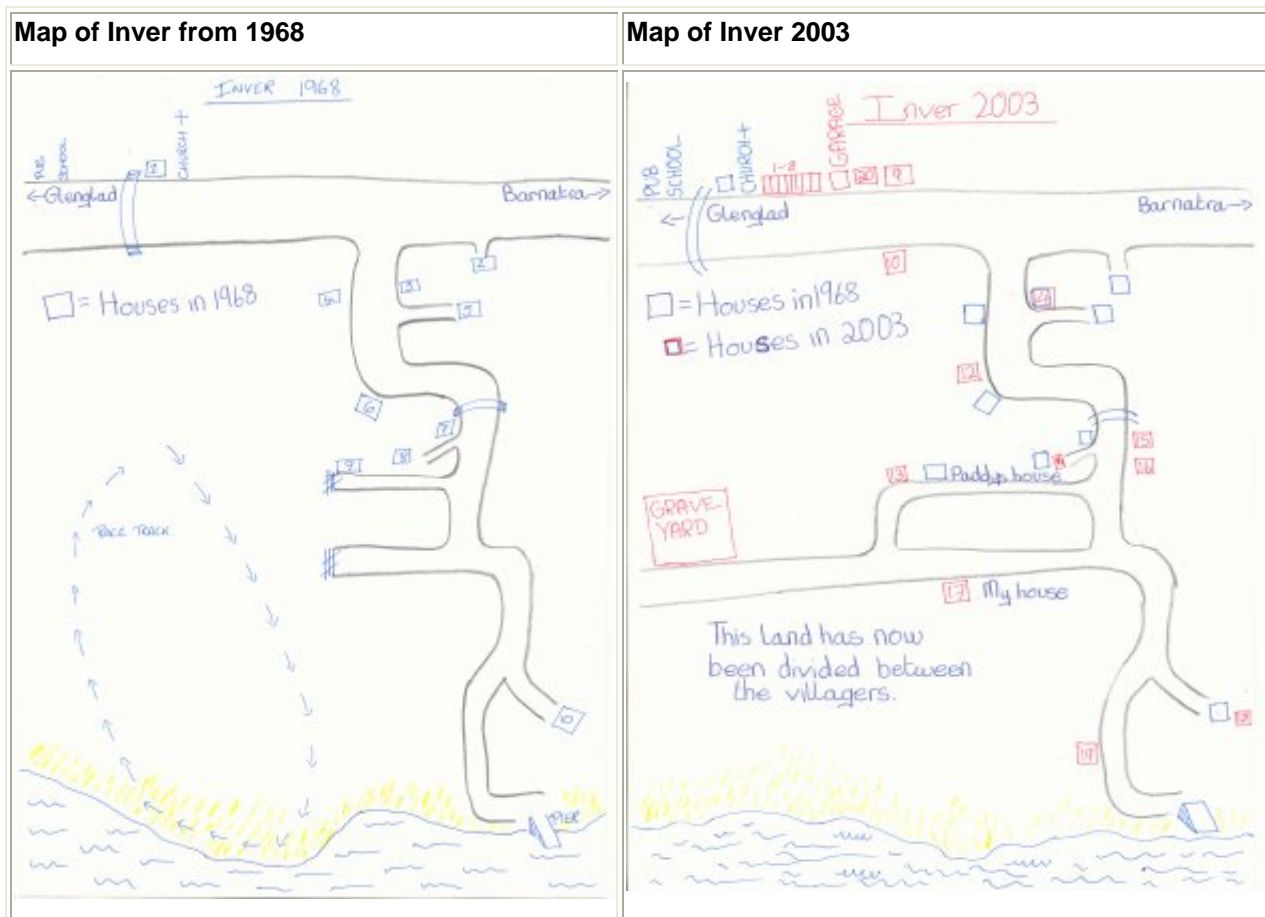 Map of Inver from 1968
INVER 1968
PUB
SCHOOL
CHURCH +
←Glenglad
Barnatra→
= Houses in 1968
6
7
8
9
RACE TRACK
10
PIER
Map of Inver 2003
Inver 2003
PUB
SCHOOL
CHURCH+
1-8
GARAGE
20
9
← Glenglad
Barnatra→
10
= Houses in 1968
= Houses in 2003
12
15
16
13
Paddys house
GRAVE
YARD
17
My house
This Land has now
been divided between
the villagers.
19